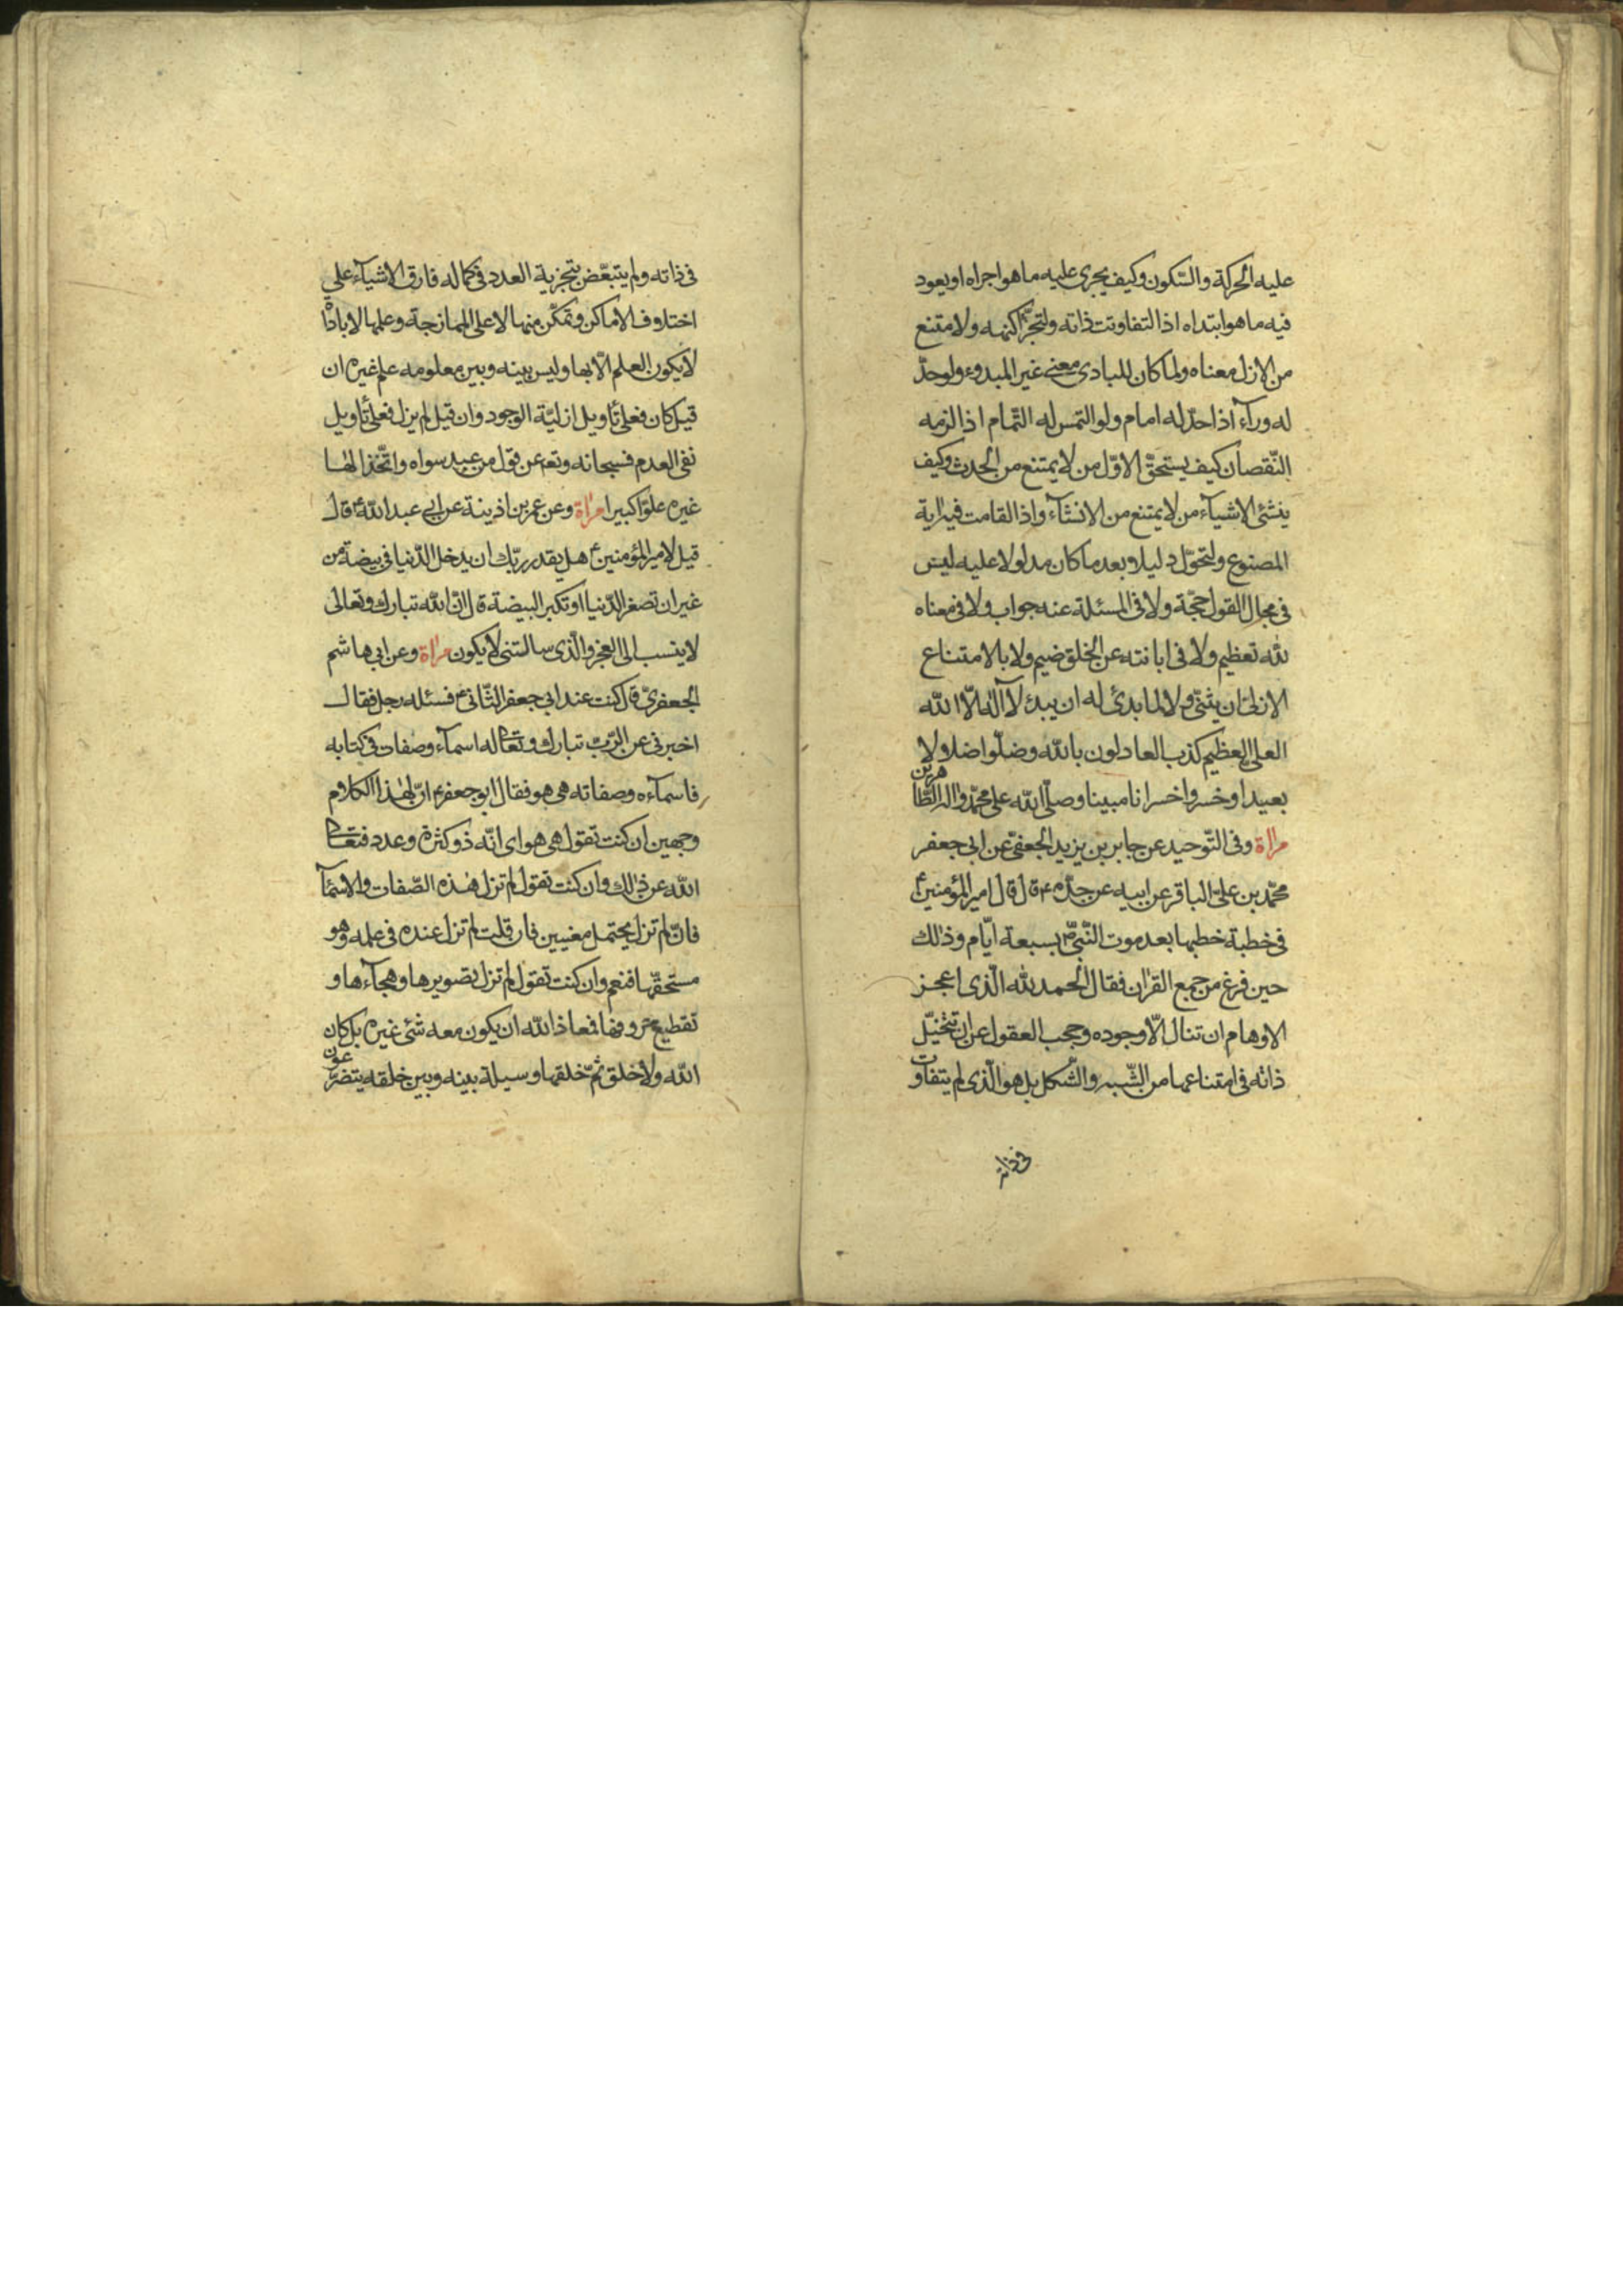 عليه الحركة والسّكون وكيف يجرى عليه ما هو اجراه او يعود
فيه ما هو ابتداه اذا لتفاوتت ذاته ولتجزّء كنهه ولامتنع
من الازل معناه ولما كان للبادى معنى غير المبدوء ولو حدّ
له وراء اذا حدّ له امام ولو التمس له التّمام اذا لزمه
النّقصان كيف يستحقّ الاوّل من لا يمتنع من الحدث وكيف
ينشئ الاشياء من لا يمتنع من الانشاء واذا لقامت فيه اية
المصنوع ولتحوّل دليلا وبعد ما كان مدلولا عليه ليس
فى مجال القول حجّة ولا فى المسئلة عنه جواب ولا فى معناه
لله تعظيم ولا فى ابانته عن الخلق ضيم ولا بالامتناع
الازلىّ ان يثنّى ولا لما بدئ له ان يبدء لا اله الّا الله
العلى العظيم كذب العادلون بالله وضلّوا ضلالا
بعيدا وخسروا خسرانا مبينا وصلّى الله على محمّد واله الطّاهرين
مراة وفى التّوحيد عن جابر بن يزيد الجعفىّ عن ابى جعفر
محمّد بن علىّ الباقر عن ابيه عن جدّه ع قال قال امير المؤمنين ع
فى خطبة خطبها بعد موت النّبىّ ص بسبعة ايّام وذلك
حين فرغ من جمع القران فقال الحمد لله الّذى اعجز
الاوهام ان تنال الّا وجوده وحجب العقول عن ان تتخيّل
ذاته فى امتناعها من الشّبه والشّكل بل هو الّذى لم يتفاوت
فى ذاته
فى ذاته ولم يتبعّض بتجزية العدد فى كماله فارق الاشياء على
اختلاف الاماكن وتمكّن منها لا على الممازجة وعلمها لا باداة
لا يكون العلم الّا بها وليس بينه وبين معلومه علم غيره ان
قيل كان فعلى تأويل ازليّة الوجود وان قيل لم يزل فعلى تأويل
نفى العدم فسبحانه وتعه عن قول من عبد سواه واتّخذ الها
غيره علوّا كبيرا مراة وعن عمر بن اذينة عن ابى عبد الله ع قال
قيل لامير المؤمنين ع هل يقدر ربّك ان يدخل الدّنيا فى بيضة من
غير ان تصغر الدّنيا او تكبر البيضة قال انّ الله تبارك وتعالى
لا ينسب الى العجز والّذى سالتنى لا يكون مراة وعن ابى هاشم
الجعفرىّ قال كنت عند ابى جعفر الثّانى ع فسئله رجل فقال
اخبرنى عن الرّبّ تبارك وتعالى له اسماء وصفات فى كتابه
فاسماءه وصفاته هى هو فقال ابو جعفر ع انّ لهذا الكلام
وجهين ان كنت تقول هى هو اى انّه ذو كثرة وعدد فتعالى
الله عن ذلك وان كنت تقول لم تزل هذه الصّفات والاسماء
فانّ لم تزل يحتمل معنيين فان قلت لم تزل عنده فى علمه وهو
مستحقّها فنعم وان كنت تقول لم تزل تصويرها وهجاءها و
تقطيع حروفها فمعاذ الله ان يكون معه شئ غيره بل كان
الله ولا خلق ثمّ خلقها وسيلة بينه وبين خلقه يتضرّعون